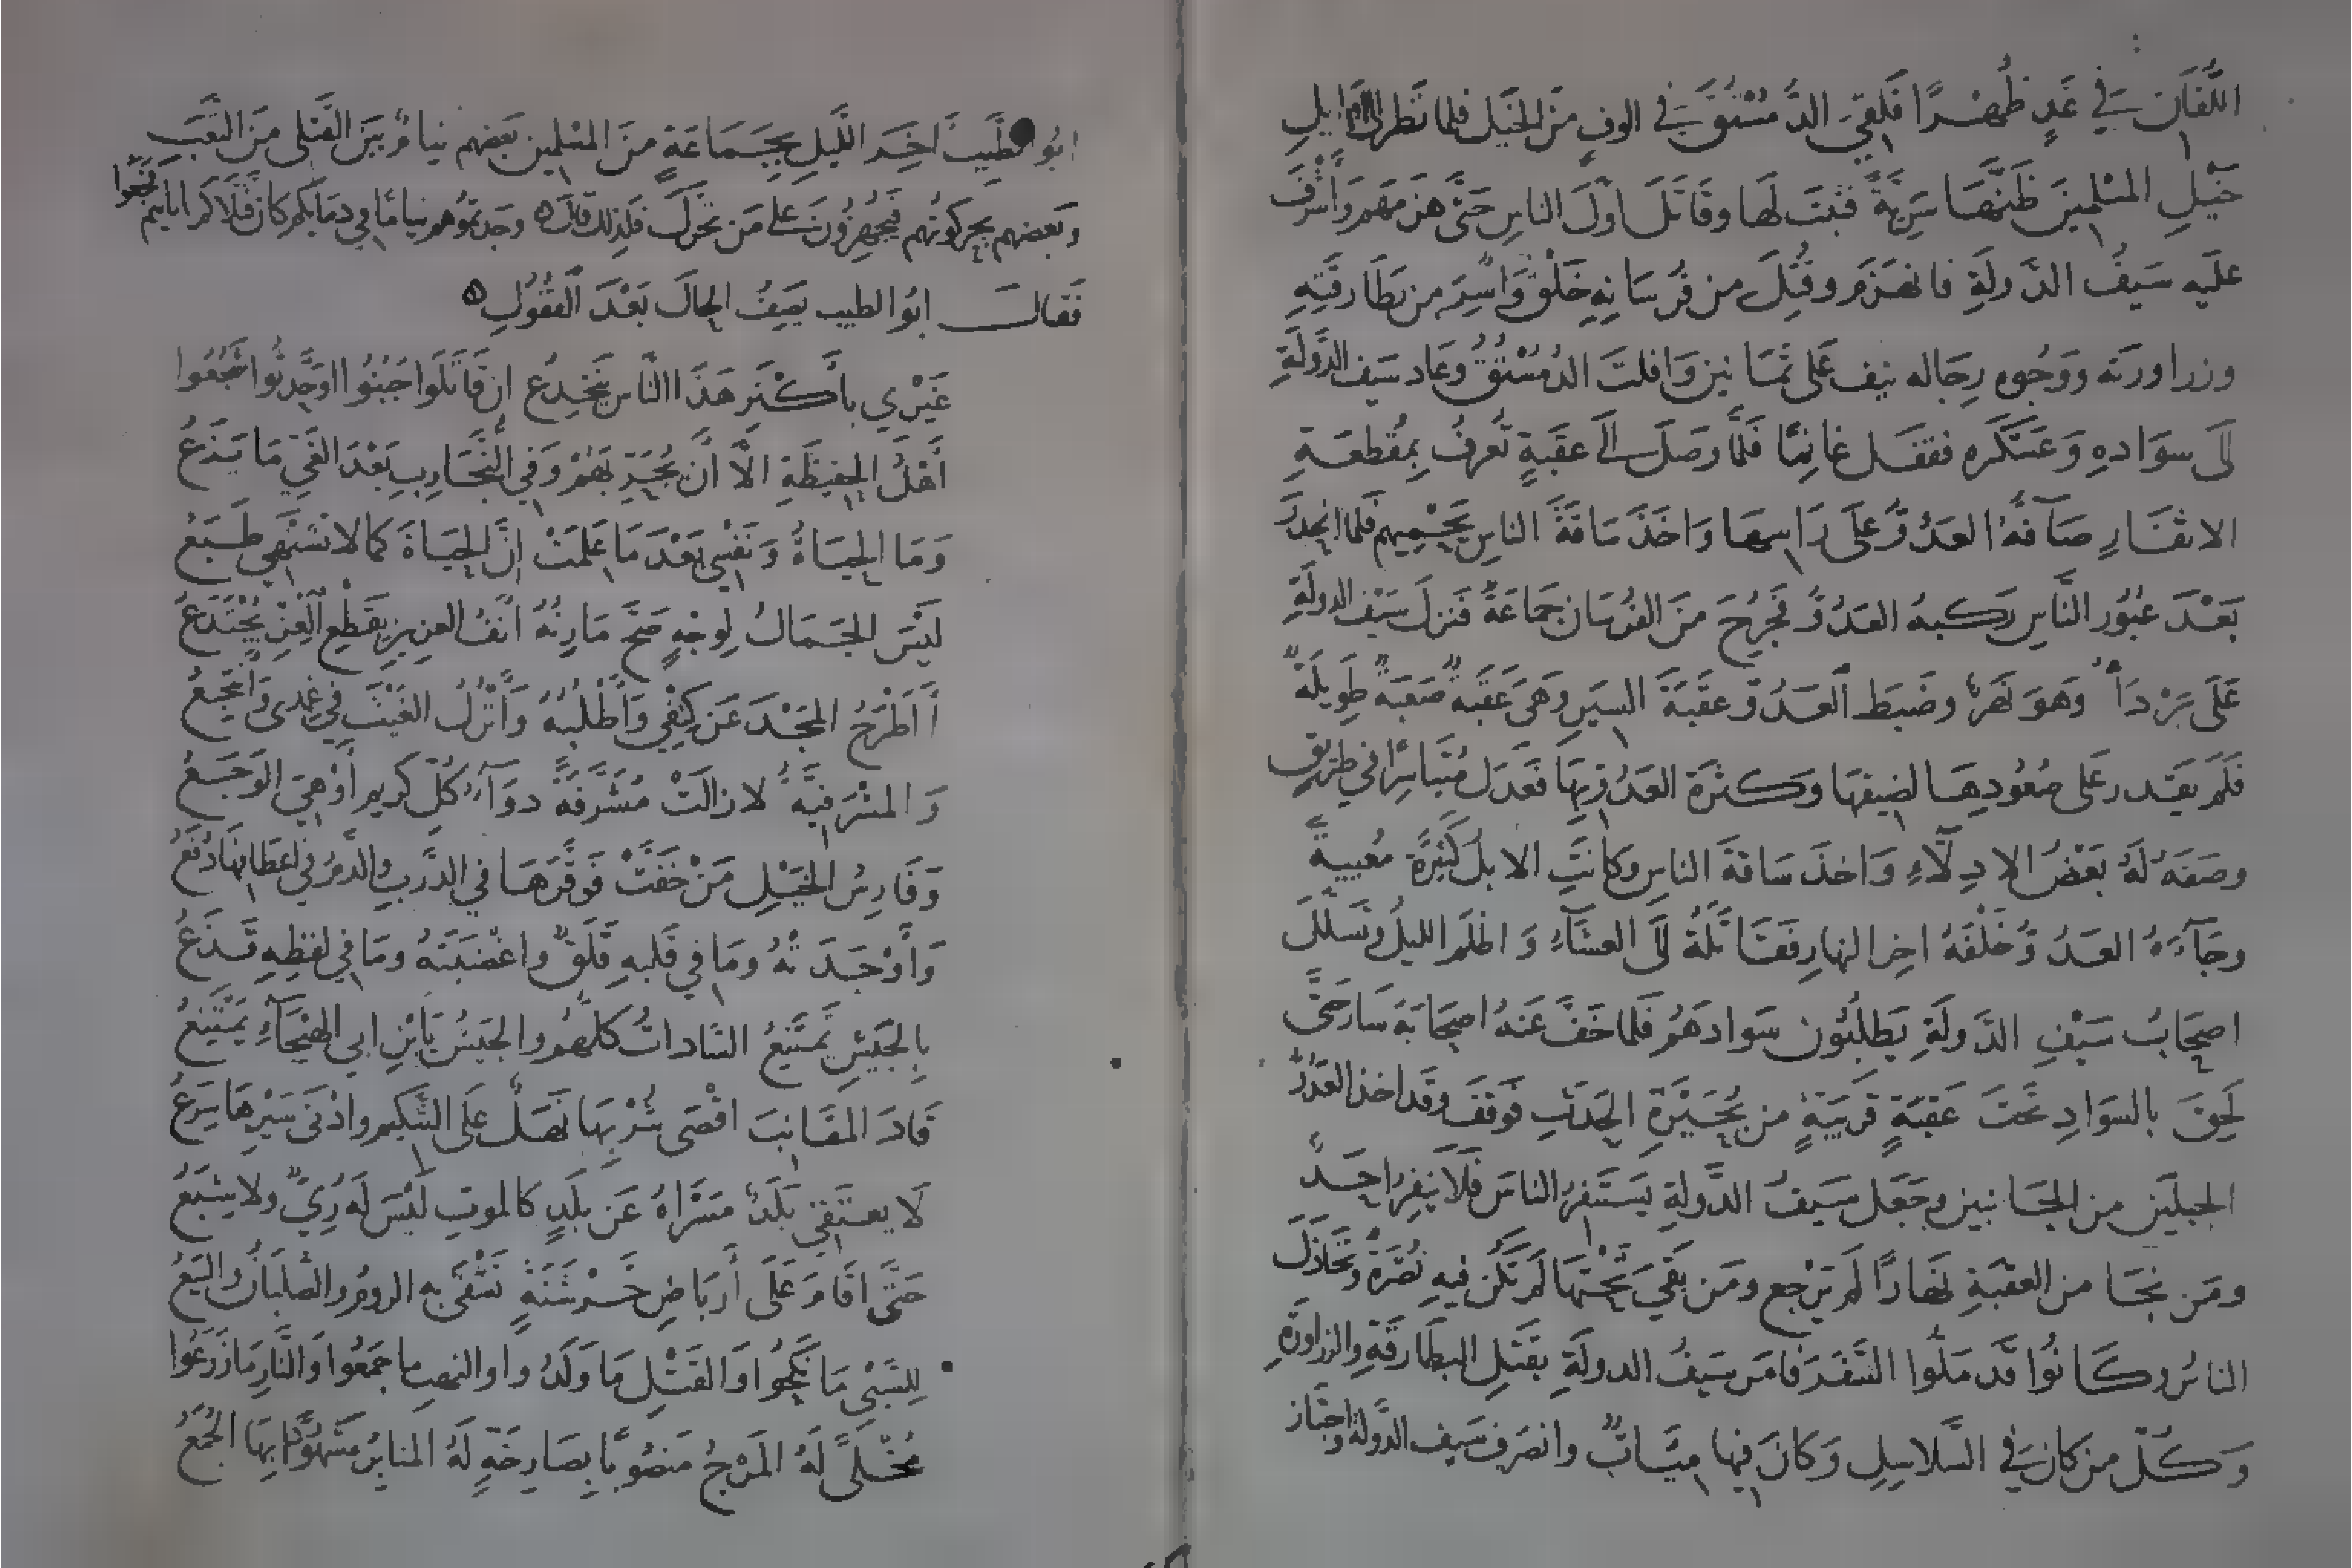 اللُّقَانَ في غَدٍ ظُهْرًا فَلَقِيَ الدُّمُسْتُقَ في الوفٍ مِنَ الخَيْلِ فلما نَظَر الى اوايلِ
خَيْلِ المُسْلِمِينَ ظَنَّهَا سَرِيَّةً فثبَتَ لَهَا وقَاتَلَ اوّلَ الناسِ حَتَّى هزَمَهُم وَأَشْرَفَ
عليَه سَيفُ الدَولَةِ فانهَزمَ وقُتِلَ من فُرسَانِهِ خَلْقٌ وَاُسِرَ من بَطَارِقَتِهِ
وزراورَته ووَجُوهِ رجَاله نيف على ثمَانين وَافلتَ الدُمُسْتُقُ وعَاد سَيف الدَّولَةِ
الَى سوَادهِ وَعَسْكَره فقفَل غانمًا فَلَمَّا وصَلَ الَى عقَبَةٍ تُعرفُ بِمُقطعَةِ
الاثفَارِ صَآفهُ العَدُوُّ على رَاسهَا وَاخَذَ سَاقةَ الناسِ يَحْمِيهم فَلما انحدَرَ
بَعْدَ عُبُور النَّاسِ رَكبهُ العَدُوُّ فجَرِحَ مَنَ الفُرسَانِ جَمَاعَةً فنزلَ سَيْف الدولَةِ
عَلَى بَرَدَا وَهوَ نَهرٌ وضَبَطَ العَدُوّ عقبَةَ السيرِ وَهيَ عَقَبَةٌ صَعبَةٌ طوِيلَةٌ
فَلَم يقَدر على صُعُودِهَا لضيقهَا وَكثرَة العَدُوّ بِهَا فعَدَل مُتيَاسِرًا في طريقٍ
وصَفَهُ لهُ بَعْضُ الادِلّاءِ وَاخذَ سَاقةَ الناسِ وَكانَتِ الابلُ كَثِيرَةً مُعيبةً
وجَآءَهُ العَدُوُّ خَلْفَهُ اخِرَ النهارِ فَقَاتَلهُ الَى العِشَآءِ وَاظلَمَ الليلُ وتَسَلَّلَ
اصحَابُ سَيْفِ الدَولَةِ يَطلُبُون سَوادَهُم فَلما خَفَّ عَنهُ اصحَابهُ سَارَ حَتَّى
لَحِقَ بالسوَادِ تَحْتَ عَقبَةٍ قَريبَةٍ من بُحَيْرَةِ الحَدَثِ فوَقفَ وقَد اخذ العَدُوُّ
الجَبلَين من الجَانبين وجَعَل سَيفُ الدَّولةِ يَستَنفرُ الناسَ فَلَا يَنفِرُ احَدٌ
ومَن نجَا من العقَبةِ نهَارًا لَم يَرْجع ومَن بَقيَ تَحْتَهَا لَم تَكُن فيهِ نُصْرَةٌ وتَخَاذَلَ
الناسُ وكَانُوا قَد مَلُّوا السَّفَرَ فامَر سَيفُ الدولَةِ بقَتلِ البطَارقَةِ والزراورَةِ
وَكُلّ من كان في السَّلاسِلِ وَكَانَ فيهَا مِيَّاتٌ وانصَرف سَيف الدَّولةِ واجتَاز
ابُو الطَيب اخِرَ اللَّيلِ بجَمَاعَةٍ منَ المسْلمِين بَعضهم نيَامٌ بَينَ القَتلى منَ التعَبِ
وبَعضهم يحركونهم فيُجهزُونَ على مَن تحركَ فلذلك قالَ وجَدتموهم نيامًا في دمَايكم كان قتلَاكم اياهم فجعُوا
فقَال ابُو الطيب يصَفُ الحالَ بَعْدَ القُفُولِ
غَيْرِي بأَكْثَرِ هَذَا النَّاسِ يَنخدِعُ ان قَاتَلُوا جَبُنُوا او حَدَّثُوا شَجُعُوا
أَهْلُ الحِفِيظَةِ الّا أَن تُجَرّبهُمْ وَفي التَّجَارِبِ بَعْدَ الغَيّ مَا يَزَعُ
وَمَا الحَيَاةُ وَنَفْسِي بَعْدَ مَا عَلِمَتْ انَّ الحَيَاةَ كمَا لا تشتَهِي طَبَعُ
لَيْسَ الجَمَالُ لِوَجْهٍ صَحَّ مَارِنُهُ انفُ العزِيزِ بقَطْعِ العِزّ يُجْتَدَعُ
أَأَطْرَحُ المَجْدَ عَن كتفِي وَأَطْلُبُهُ وَأَتْرُكُ الغَيْثَ في غمدي وَانتجعُ
وَالمشْرَفيّةُ لا زالتْ مُشَرَّفَةً دوَآءُ كُلّ كريم أَوْ هِيَ الوَجَعُ
وَفَارِسُ الخَيْلِ مَنْ خَفَّتْ فَوَقَّرَهَا في الدَّربِ والدَّمُ في اعطَافِهَا دُفَعُ
وَأَوْحَدَتْهُ ومَا في قَلبهِ قَلَقٌ واغضَبتهُ ومَا في لفظِهِ قَذَعُ
بالجَيشِ تمتَنِعُ السَّاداتُ كلّهُم والجَيشُ بابْنِ ابي الهَيْجَآءِ يمْتَنِعُ
قادَ المَقَانبَ اقْصَى شُرْبِهَا نَهَلٌ عَلَى الشَّكِيم وادْنَى سَيْرِهَا سِرَعُ
لَا يعتَقِي بَلَدٌ مَسْرَاهُ عَن بلَدٍ كالموتِ لَيْسَ لَه رِيٌّ ولا شِبَعُ
حَتَّى اقَامَ عَلَى أَرْبَاضِ خَرْشَنَةٍ تَشْقَى به الرومُ والصُّلبَانُ والبِيَعُ
لِلسَّبْي مَا نَكَحُوا وَالقَتْل مَا وَلَدُوا والنهبِ ما جَمَعُوا وَالنارِ مَا زَرَعُوا
مُخْلًى لَهُ المَرْجُ مَنصُوبًا بِصَارِخَةٍ لَهُ المنابِرُ مَشهُودًا بِهَا الجُمَعُ